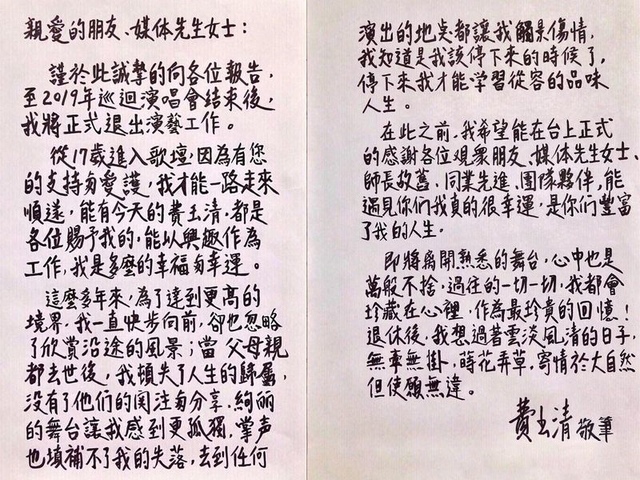 親愛的朋友、媒体先生女士：
謹於此誠摯的向各位報告，
至2019年巡迴演唱會結束後，
我將正式退出演藝工作。
從17歲進入歌壇，因為有您
的支持与愛護，我才能一路走來
順遂，能有今天的費玉清，都是
各位賜予我的，能以興趣作為
工作，我是多麼的幸福与幸運。
這麼多年來，為了達到更高的
境界，我一直快步向前，卻也忽略
了欣賞沿途的風景；當父母親
都去世後，我頓失了人生的歸屬，
沒有了他們的関注与分享，絢麗
的舞台讓我感到更孤獨，掌声
也填補不了我的失落，去到任何
演出的地点都讓我觸景傷情，
我知道是我該停下來的時候了，
停下來我才能学習從容的品味
人生。
在此之前，我希望能在台上正式
的感謝各位观眾朋友、媒体先生女士、
師長故舊、同業先進、团隊夥伴，能
遇見你們我真的很幸運，是你們豐富
了我的人生。
即將离開熟悉的舞台，心中也是
萬般不捨，過往的一切一切，我都會
珍藏在心裡，作為最珍貴的回憶！
退休後，我想過著雲淡風清的日子，
無牽無掛，蒔花弄草，寄情於大自然
但使願無違。
費玉清 敬筆